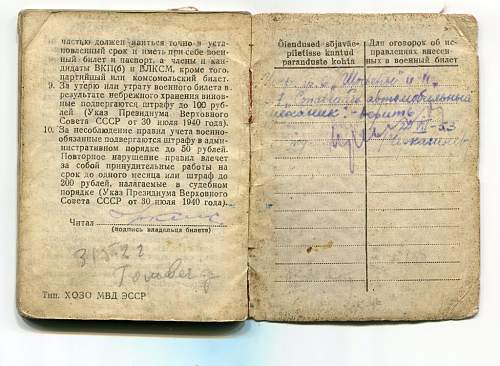 частью должен явиться точно в уста-
новленный срок и иметь при себе военный
билет и паспорт, а члены и кан-
дидаты ВКП(б) и ВЛКСМ, кроме того,
партийный или комсомольский билет.
9. За утерю или утрату военного билета в
результате небрежного хранения винов-
ные подвергаются штрафу до 100
рублей (Указ Президиума Верховного
Совета СССР от 30 июля 1940 года).
10. За несоблюдение правил учета военно-
обязанные подвергаются штрафу в адми-
нистративном порядке до 50 рублей.
Повторное нарушение правил влечет
за собой принудительные работы на
срок до одного месяца или штраф до
200 рублей, налагаемые в судебном
порядке (Указ Президиума Верховного
Совета СССР от 30 июля 1940 года).
Читал
(подпись владельца билета)
Тип. ХОЗО МВД ЭССР
Õiendused sõjaväe-
piletisse kantud
paranduste kohta
Для оговорок об ис-
правлениях внесен-
ных в военный билет
автомобильный
механик верить